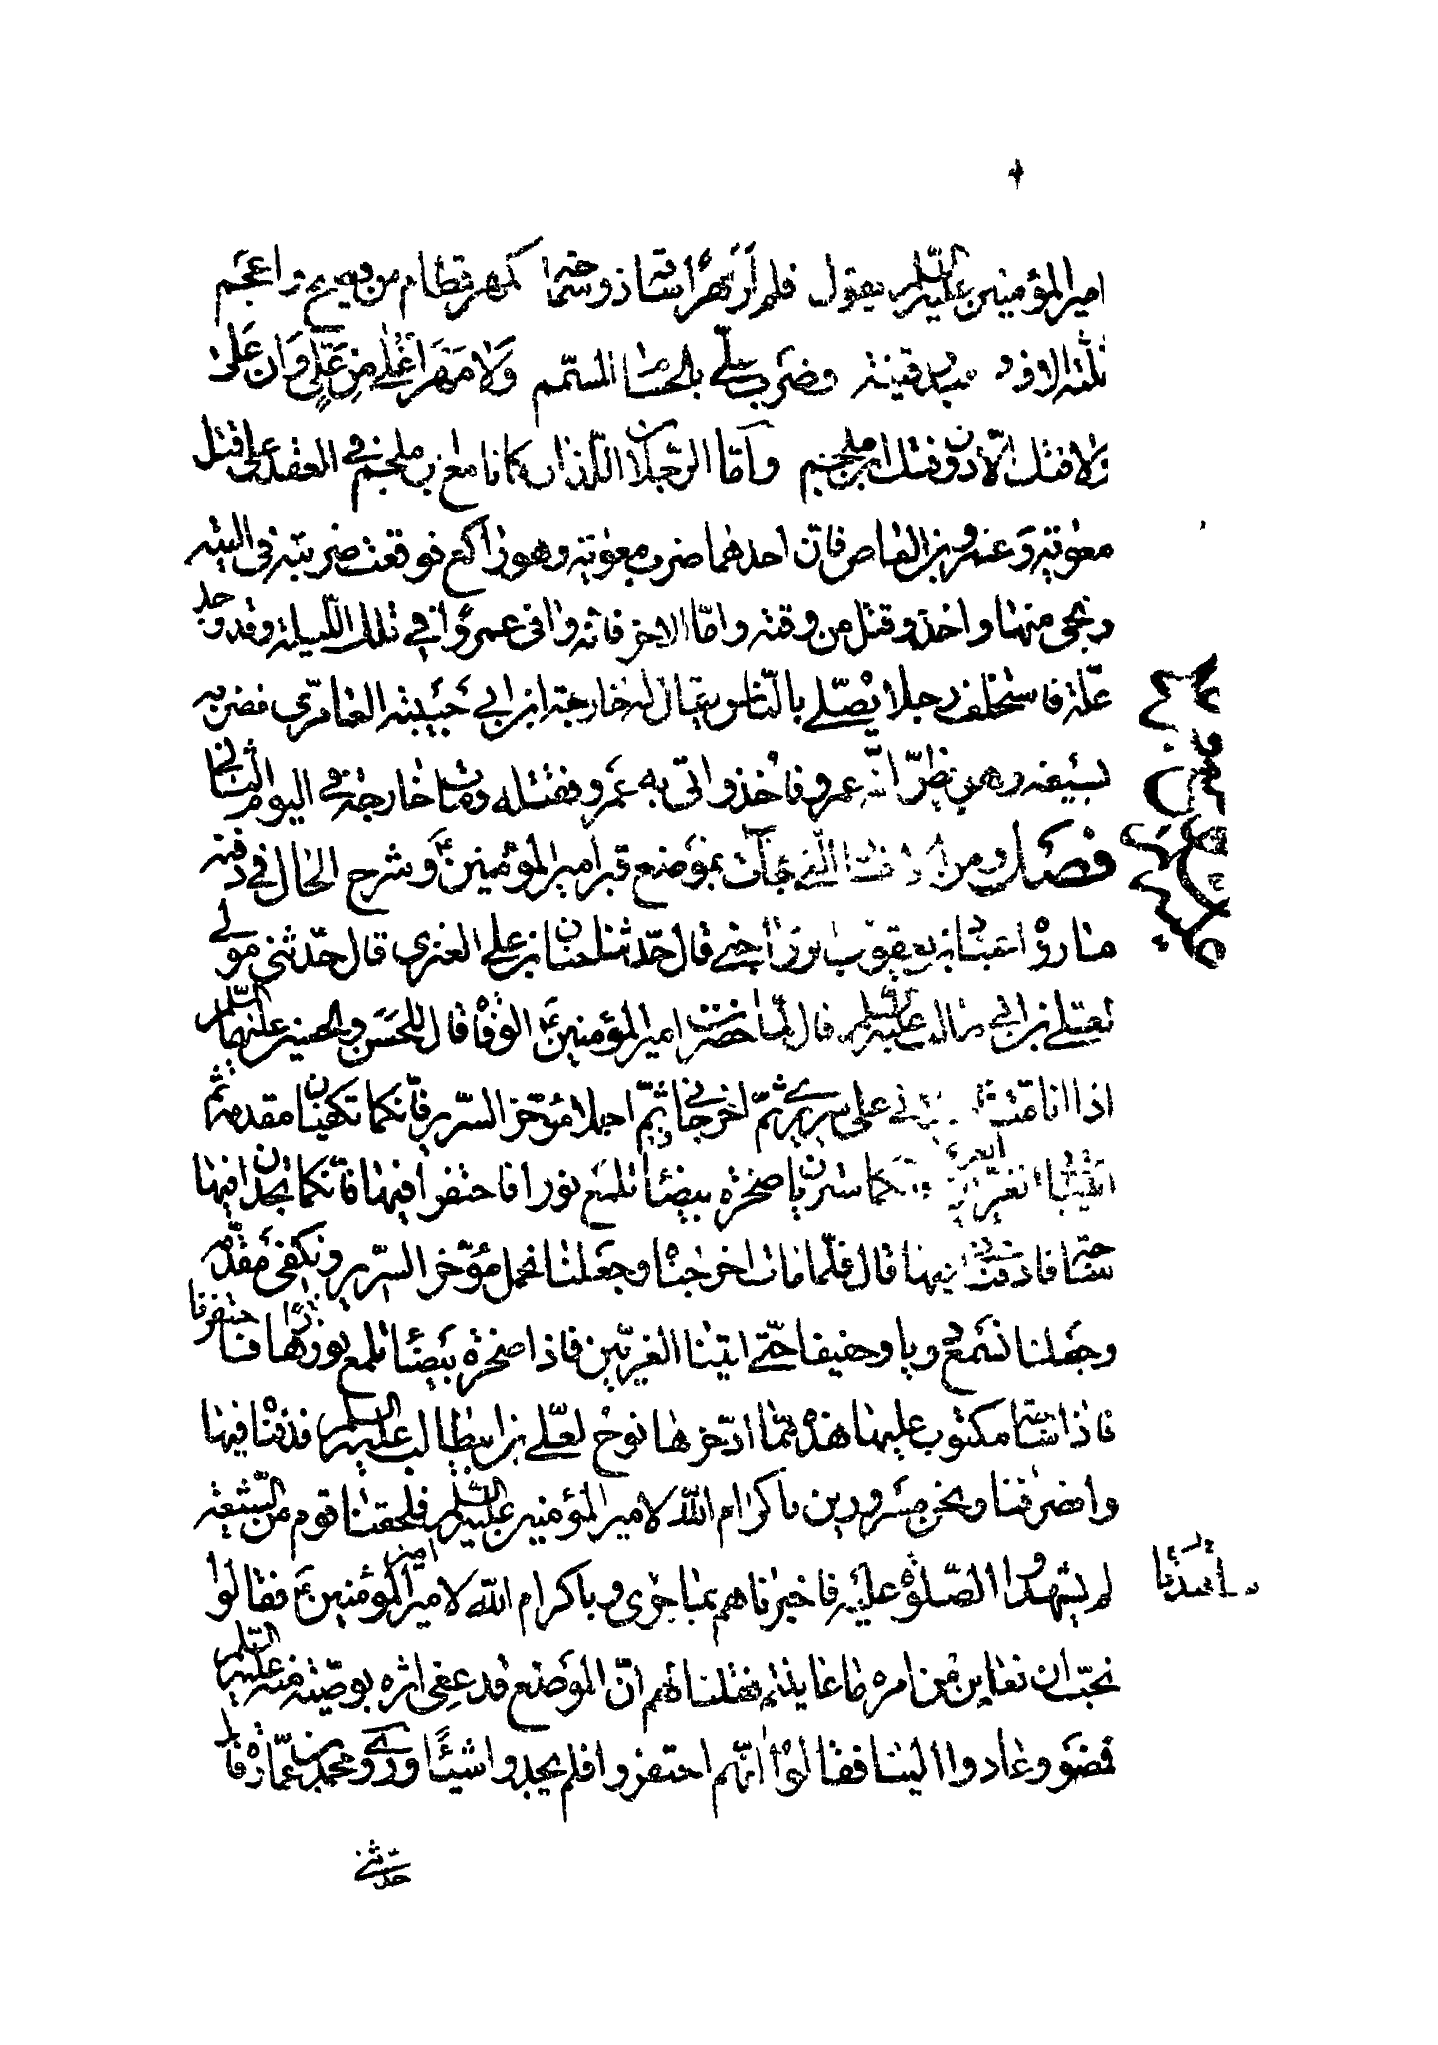 امير المؤمنين عليه السلم يقول فلم أر مهرًا ساقه ذو سماحة كمهر قطام من فصيح واعجم
ثلثة الاف و وقينة وضرب علي بالحسام المسمم ولا مهر اغلى من علي وان على
ولا فتك الا دون فتك ابن ملجم وأما الرجلان اللذان كانا مع بن ملجم في العقد على قتل
معوية وعمرو بن العاص فان احدهما ضرب معوية وهو راكع فوقعت ضربته في اليته
ونجى منها واخذ وقتل من وقته واما الاخر فانه وافى عمروًا في تلك الليلة وقد وجد
علة فاستخلف رجلا يصلي بالناس يقال له خارجة ابن ابي حبيبة العامري فضربه
بسيفه وهو يظن انه عمرو فاخذ واتى به عمرو فقتله ومات خارجة في اليوم الثاني
فصل ومن التي جاءت بموضع قبر امير المؤمنين ع وشرح الحال في دفنه
ما رواه عباد بن يعقوب الرواجني قال حدثنا حنان بن علي العنزي قال حدثني مولى
لعلي بن ابي طالب عليه السلم قال لما حضرت امير المؤمنين ع الوفاة قال للحسن والحسين عليهما السلم
اذا انا مت على سريري ثم اخرجاني ثم احملا مؤخر السرير فانكما تكفيان مقدمه ثم
ائتيا بي الغريين فانكما ستريان صخرة بيضاء تلمع نورا فاحتفرا فيها فانكما تجدان فيها
ساجة فادفناني فيها قال فلما مات اخرجناه وجعلنا نحمل مؤخر السرير ونكفى مقدمه
وجعلنا نسمع دويا وحفيفا حتى اتينا الغريين فاذا صخرة بيضاء تلمع نورها فاحتفرنا
فاذا ساجة مكتوب عليها هذه مما ادخرها نوح لعلي بن ابيطالب عليه السلم فدفناه فيها
وانصرفنا ونحن مسرورين باكرام الله لامير المؤمنين عليه السلم فلحقنا قوم من الشيعة
لم يشهدوا الصلوة عليه فاخبرناهم بما جرى وباكرام الله لامير المؤمنين ع فقالوا
نحب ان نعاين من امره ما عاينتم فقلنا لهم ان الموضع قد عفي اثره بوصية منه عليه السلم
فمضوا وعادوا الينا فقالوا انهم احتفروا فلم يجدوا شيئًا وروى محمد بن عمارة قال
حدثني